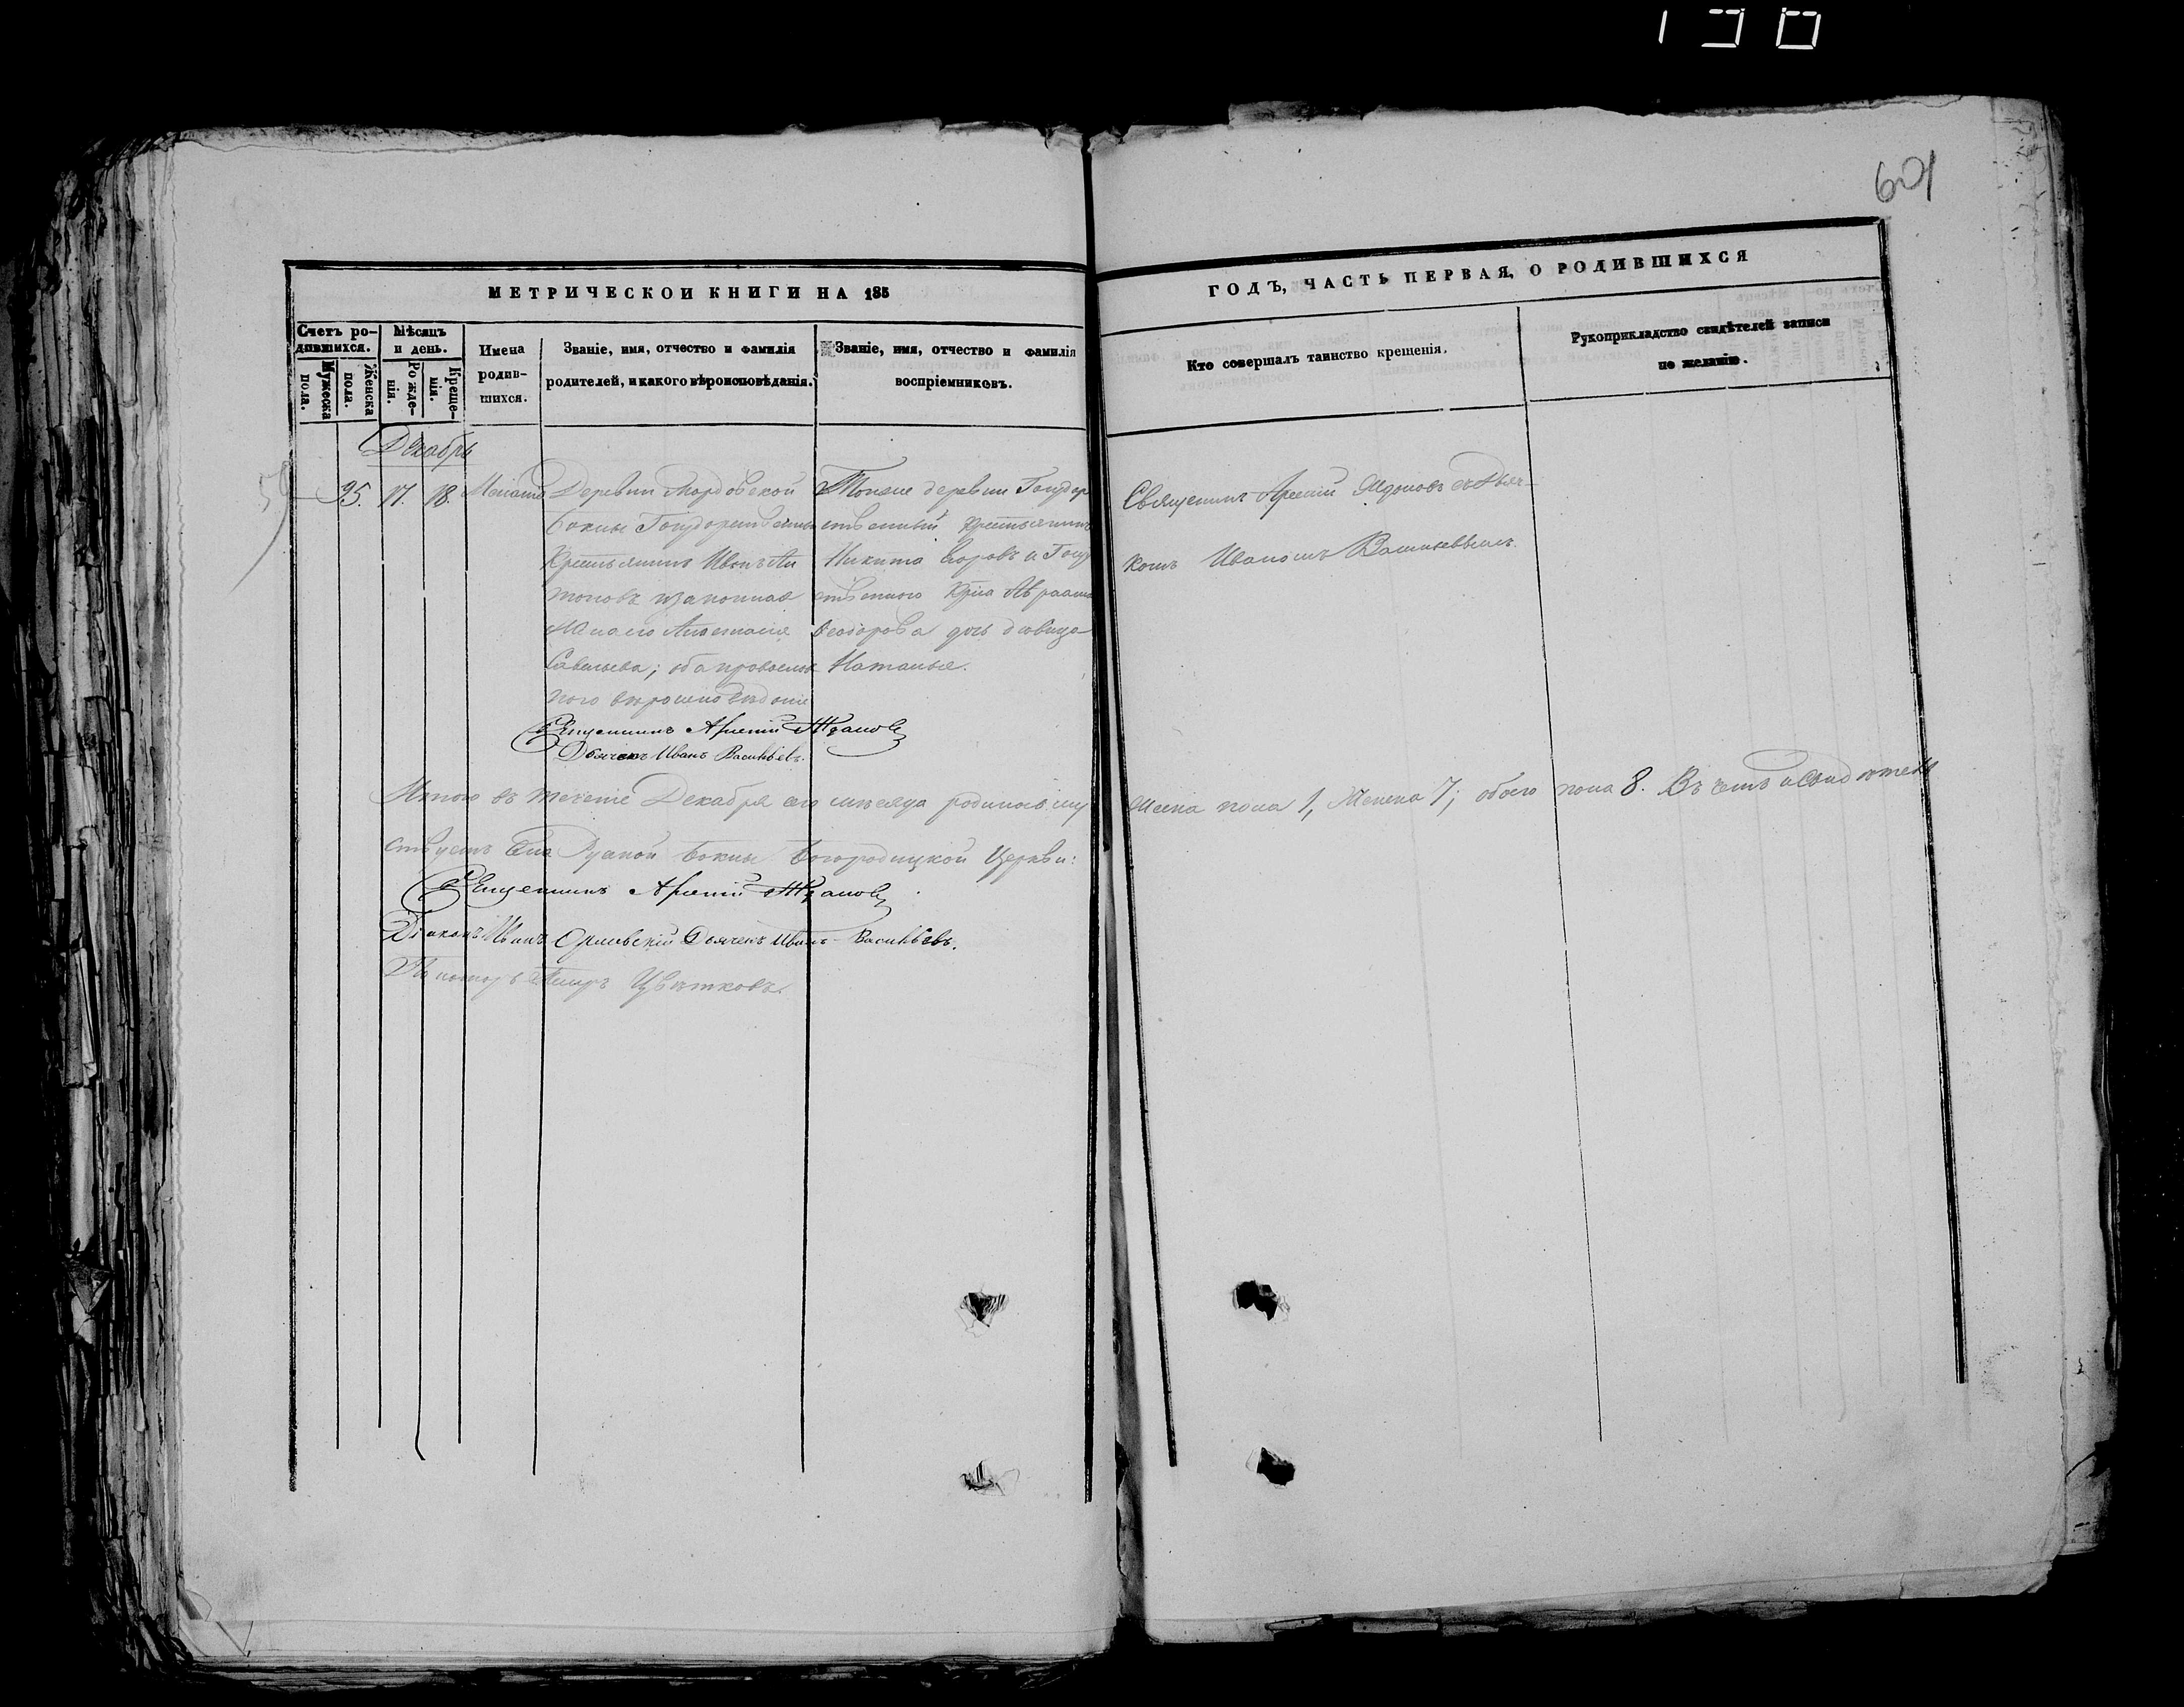 130
601
МЕТРИЧЕСКОЙ КНИГИ НА 185
ГОДЪ, ЧАСТЬ ПЕРВАЯ, О РОДИВШИХСЯ
Счетъ родившихся.
Мужеска пола.
Женска пола.
Мѣсяцъ и день.
Рожденія.
Крещенія.
Имена родившихся.
Званіе, имя, отчество и фамилія
родителей, и какого вѣроисповѣданія.
Званіе, имя, отчество и фамилія
воспріемниковъ.
Кто совершалъ таинство крещенія.
Рукоприкладство свидѣтелей записи
по желанію.
Декабрь
95. 17. 18.
Деревни Мордовской
Бокны Государственный
Крестьянинъ Иванъ Ан
тоновъ и законная
жена его Анастасія
Савельева; оба православ
наго вероисповеданія
Тойже деревни Государ
ственный крестьянинъ
Никита Егоровъ и Госу
ственнаго Авраама
Феодорова дочь девица
Наталья.
Священникъ Арсеній Ждановъ съ Дьяч-
комъ Иваномъ Васильевымъ.
Священникъ Арсеній Ждановъ
Дьячекъ Иванъ Васильевъ.
Итого въ течение Декабря сего месяца родилось му
жеска пола 1, Женска 7; обоего пола 8. Въ чемъ и свидетель
ствуетъ Села Руской Бокны Богородицкой Церкви:
Священникъ Арсеній Ждановъ
Діаконъ Иванъ Орловскій Дьячекъ Иванъ Васильевъ.
Пономарь Цветковъ.